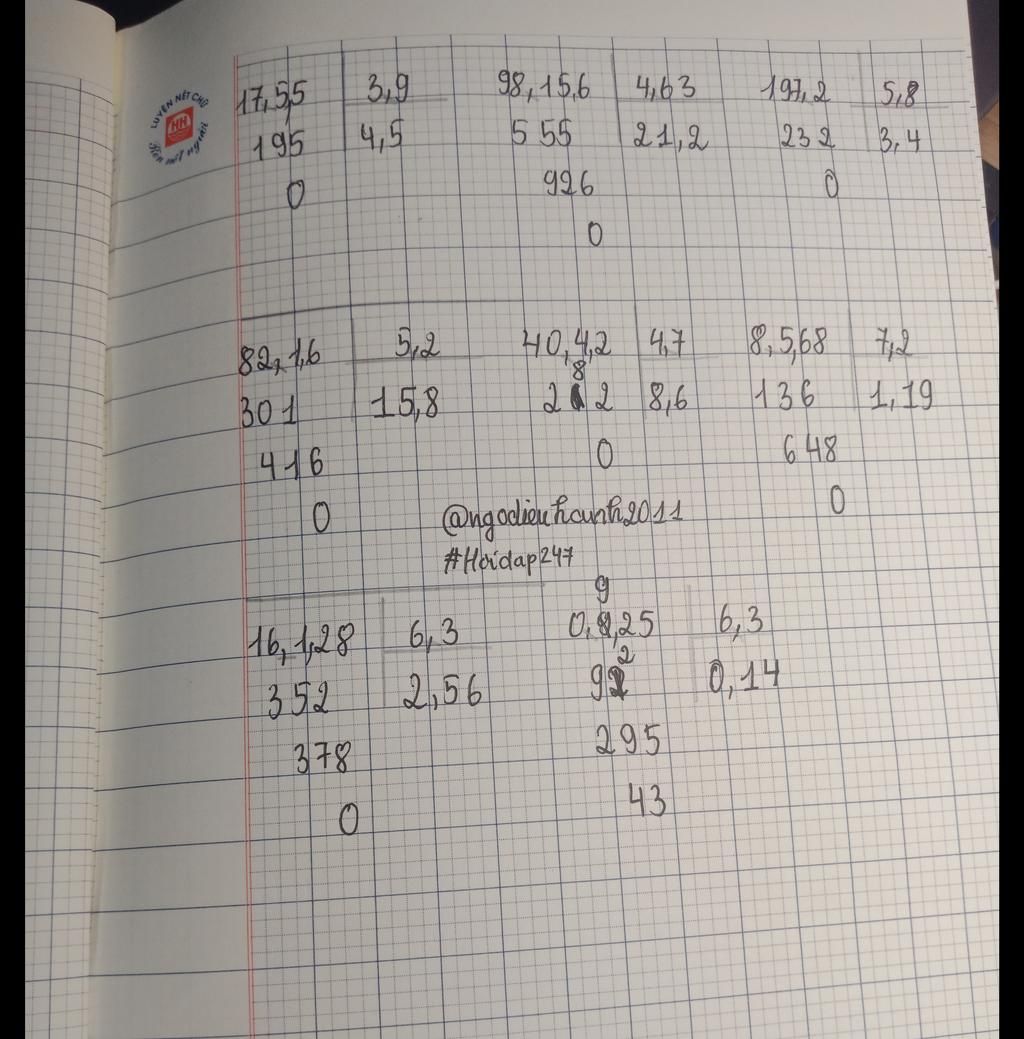 LUYỆN NÉT CHỮ
HH
Rèn nết người
17,5,5 3,9 98,15,6 4,63 197,2 5,8
195 4,5 555 21,2 232 3,4
0 926 0
0
82,1,6 5,2 40,4,2 4,7 8,5,68 7,2
301 15,8 282 8,6 136 1,19
416 0 648
0 @ngodieuhcunh2011 0
#Hoidap247
16,1,28 6,3 0,9,25 6,3
352 2,56 922 0,14
378 295
0 43